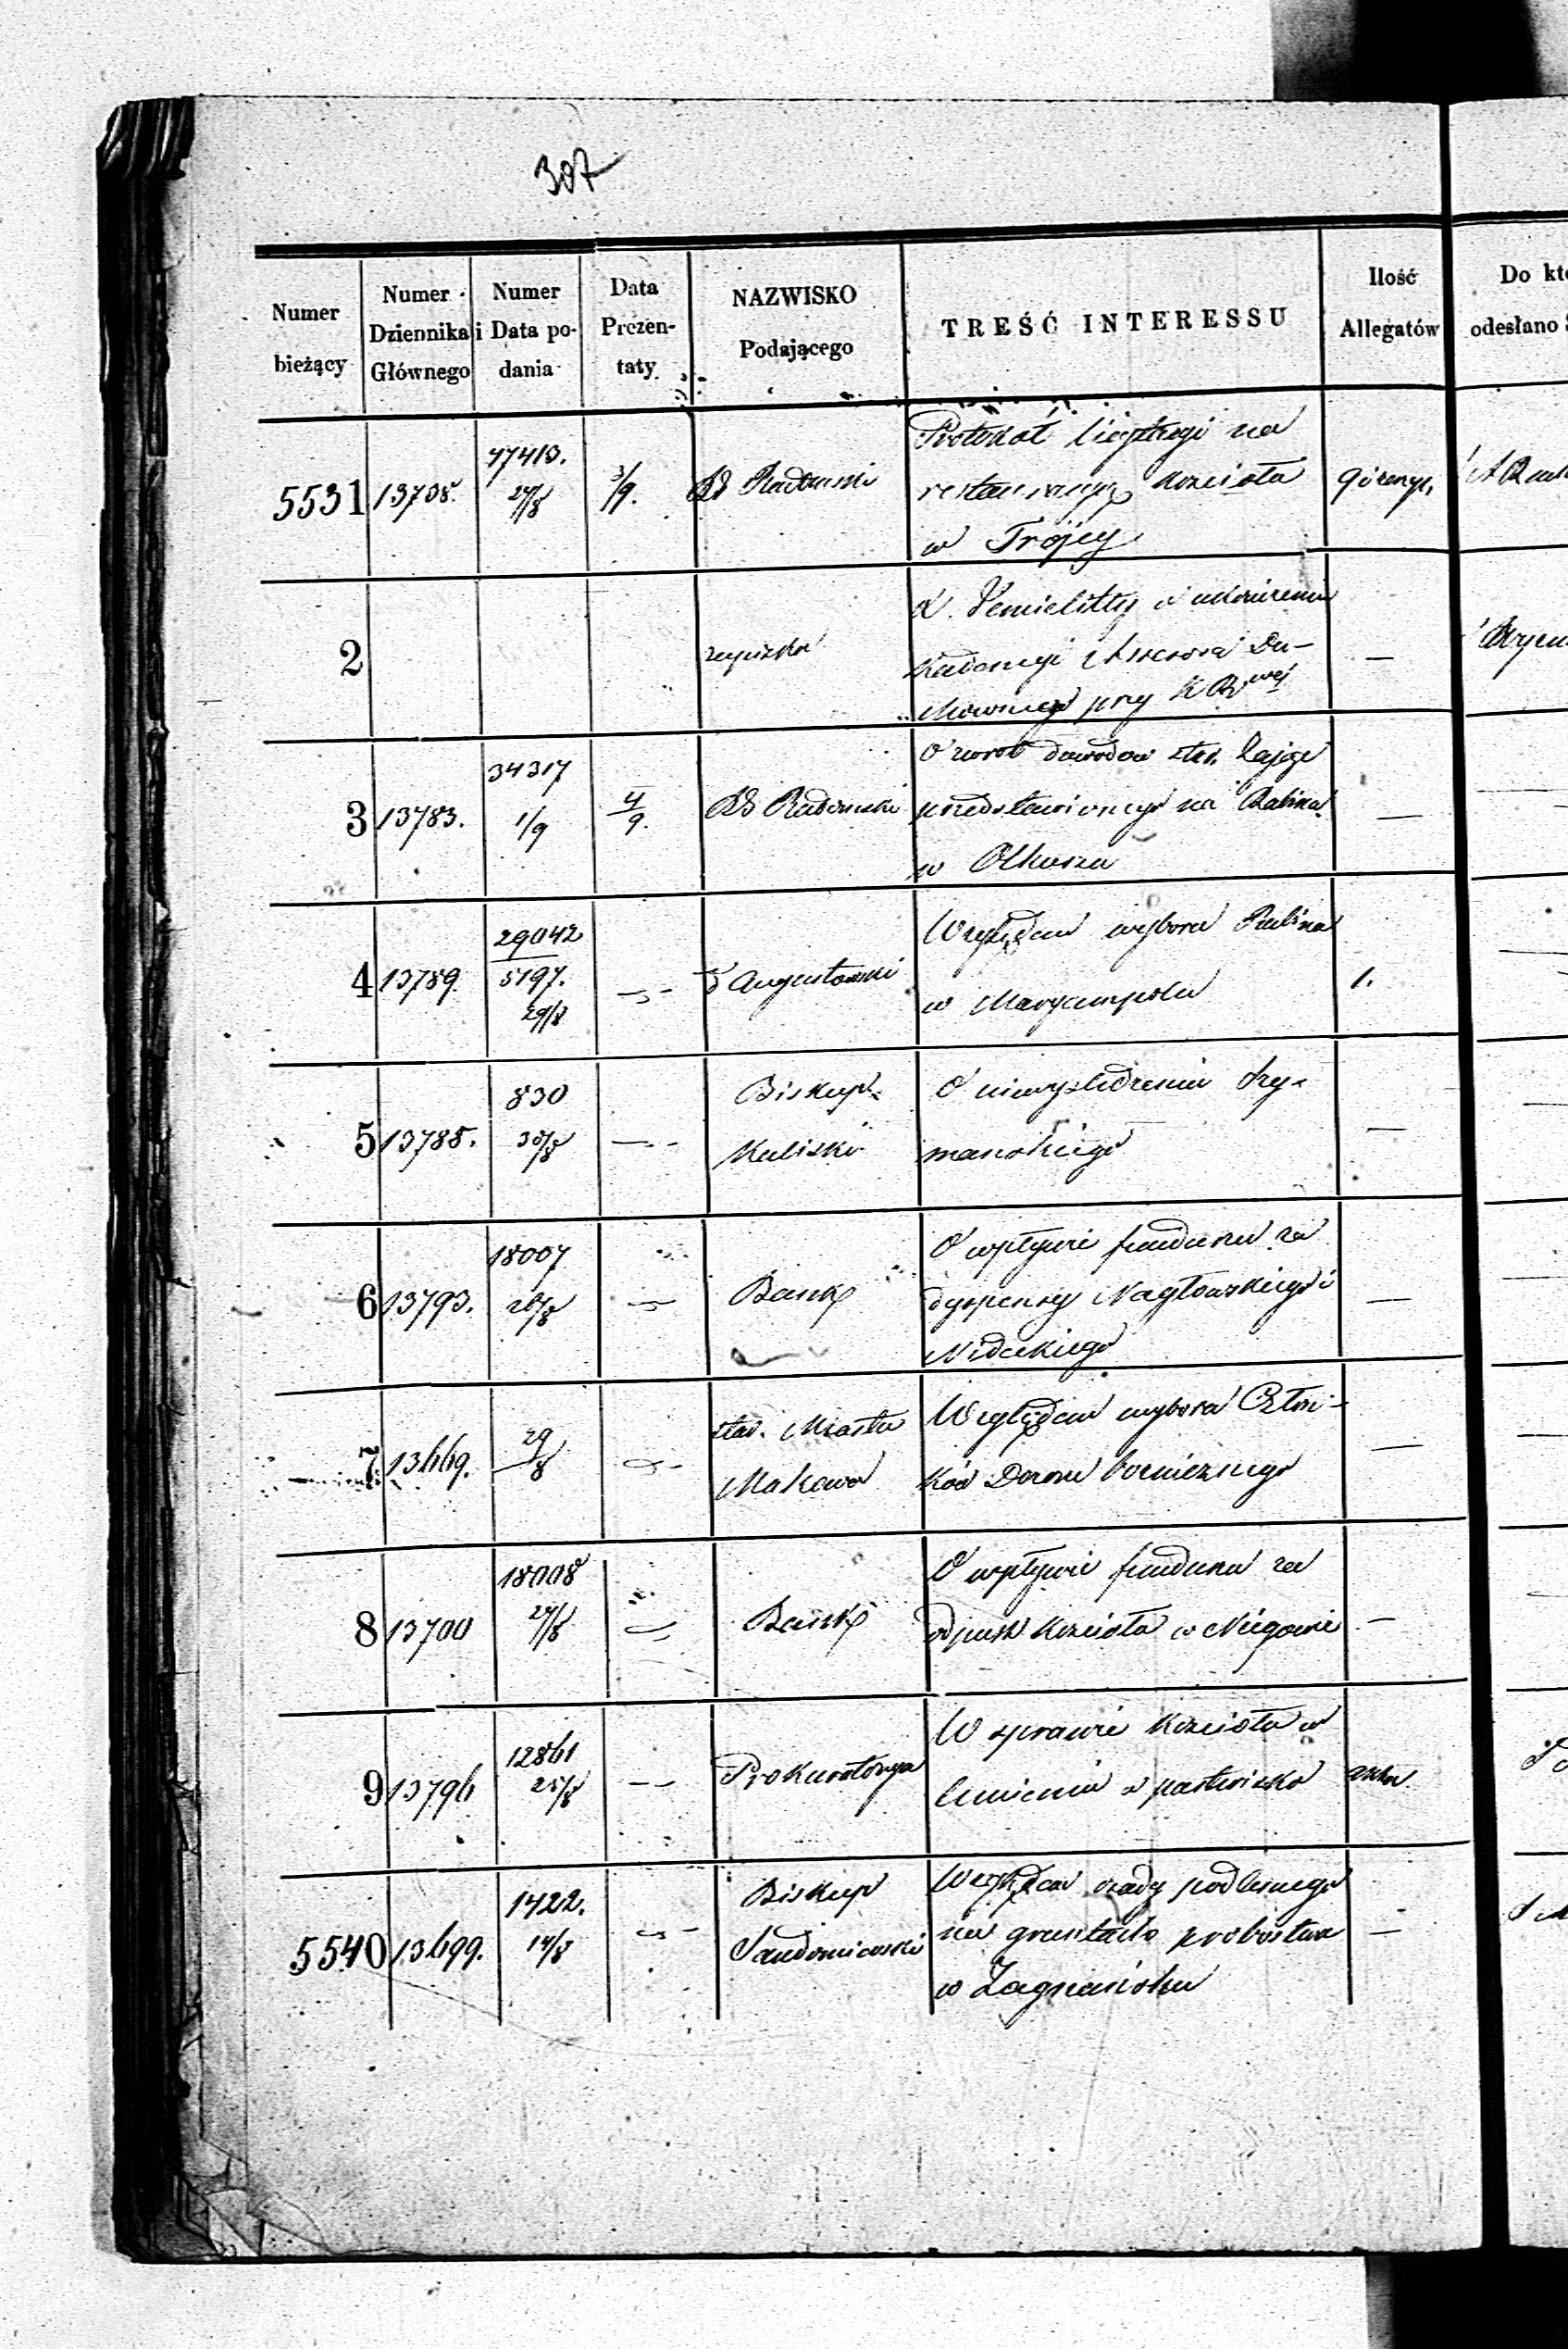 307
Numer bieżący
Numer Dziennika Głównego
Numer i Data podania
Data Prezentaty
NAZWISKO Podającego
TREŚĆ INTERESSU
Ilość Allegatów
Do kt
odesłano
5531 13708. 47413. 27/8 3/9. Radomski
Protokół licytacyi na
restauracyą kościoła
w Trójcy
2 zapiska
o udzieleniu
Assessora Du-
chownego przy
3 13783. 34317 1/9 4/9. Radomski
O zwrot dowodów
przedstawionego na Rabina
w Olkuszu
4 13789. 29042 5197. 29/8 Augustowski
Względem wyboru Rabina
w Maryampolu
1.
5 13788. 830 30/8 Biskup
Kaliski
O niewyśledzeniu Szy-
mańskiego
6 13793. 18007 26/8 Bank
O wpływie funduszu za
dyspensy Nagłowskiego i
Nideckiego
7 13669. 29/8 Miasta
Makowa
Względem wyboru Człon-
ków Dozoru bożnicznego
8 13700 18008 27/8 Bank
O wpływie funduszu za
odpust kościoła w Niegowie
9 13796 12861 25/8 Prokuratorya
W sprawie kościoła w
o pastwisko
akta
5540 13699. 1422. 14/8 Biskup
Sandomierski
Względem osady podleśnego
na gruntach probostwa
w Zagnańsku